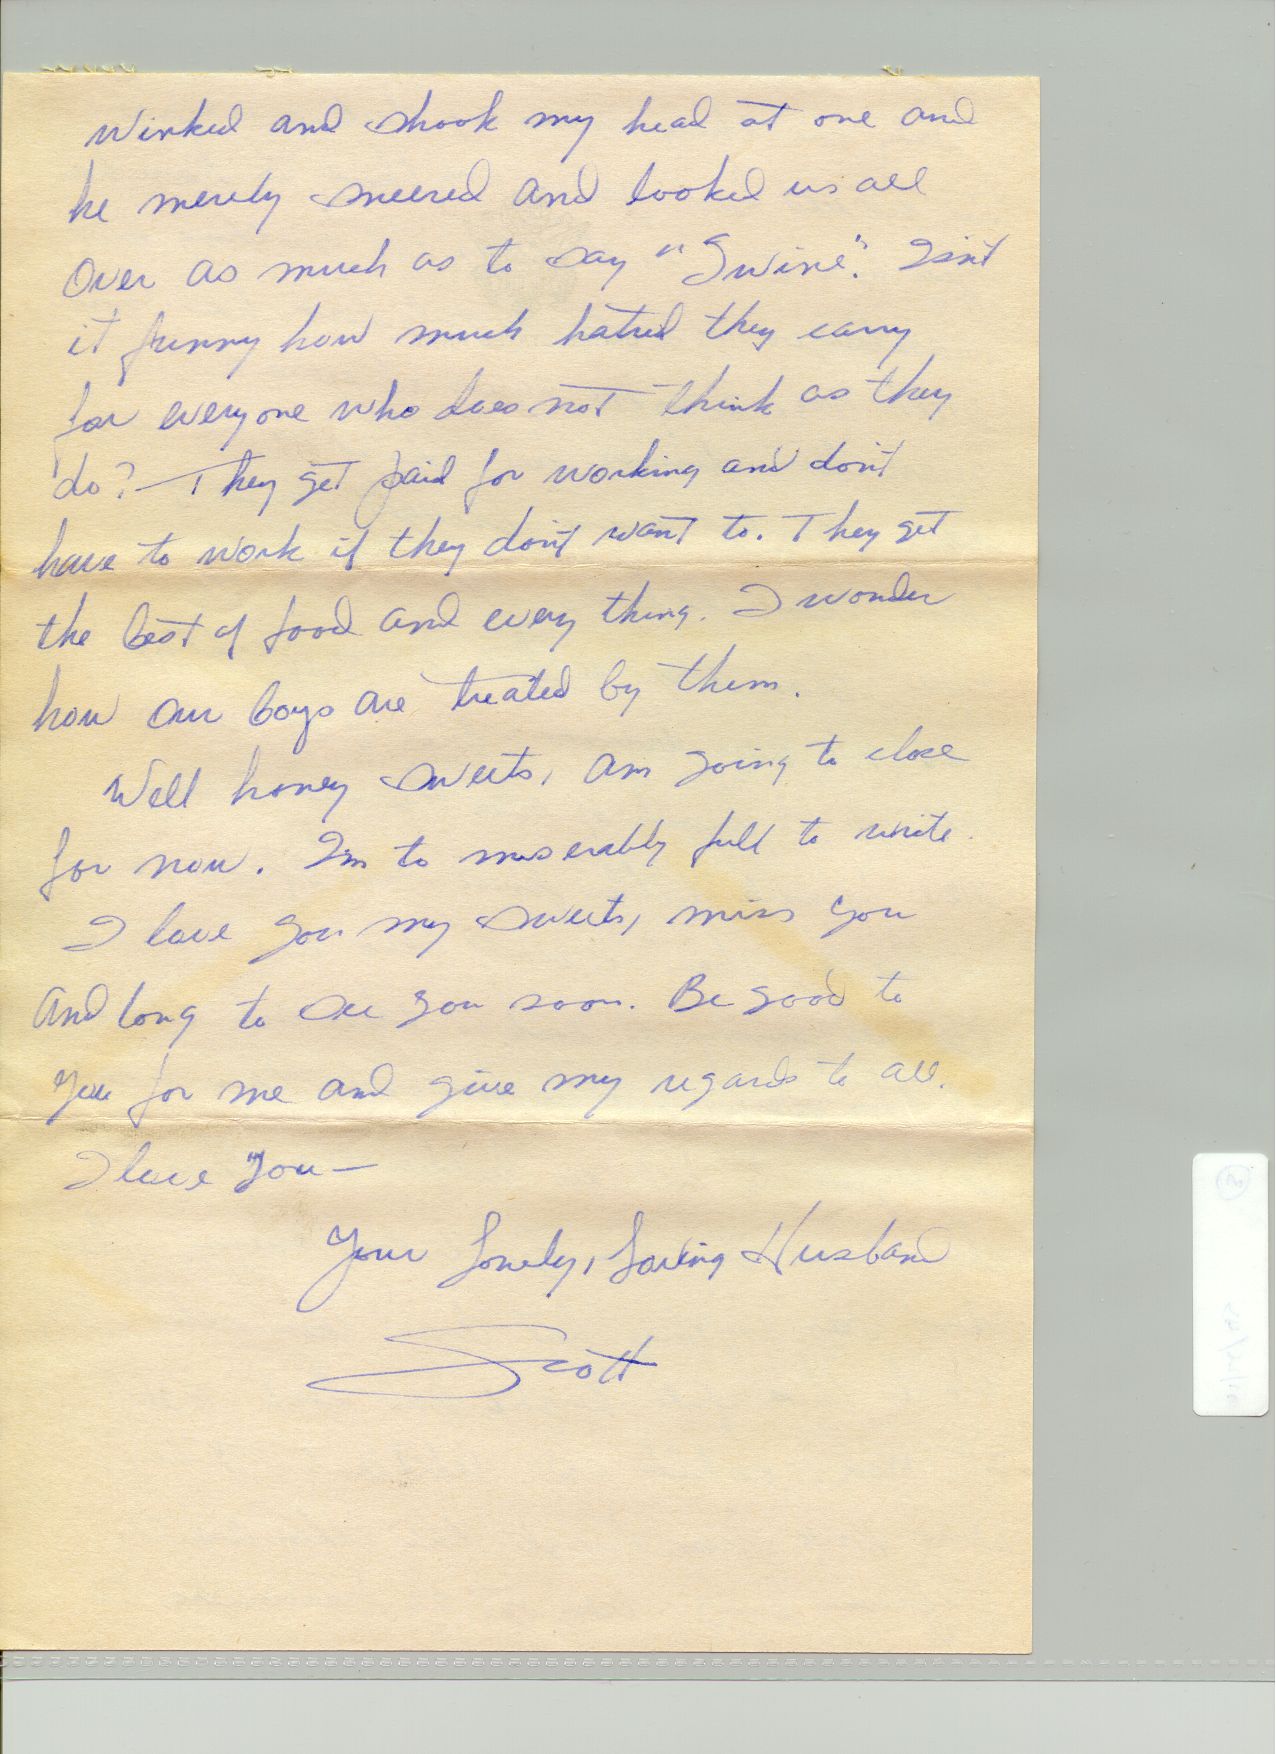 Winked and shook my head at one and
he merely sneered and looked us all
over as much as to say "Swine". Isn't
it funny how much hatred they carry
for everyone who does not think as they
do? — They get paid for working and don't
have to work if they don't want to. They get
the best of food and every thing. I wonder
how our boys are treated by them.
Well honey sweets, am going to close
for now. I'm to miserably full to write.
I love you my sweets, miss you
and long to see you soon. Be good to
you for me and give my regards to all.
I love you —
Your lonely, loving Husband
Scott